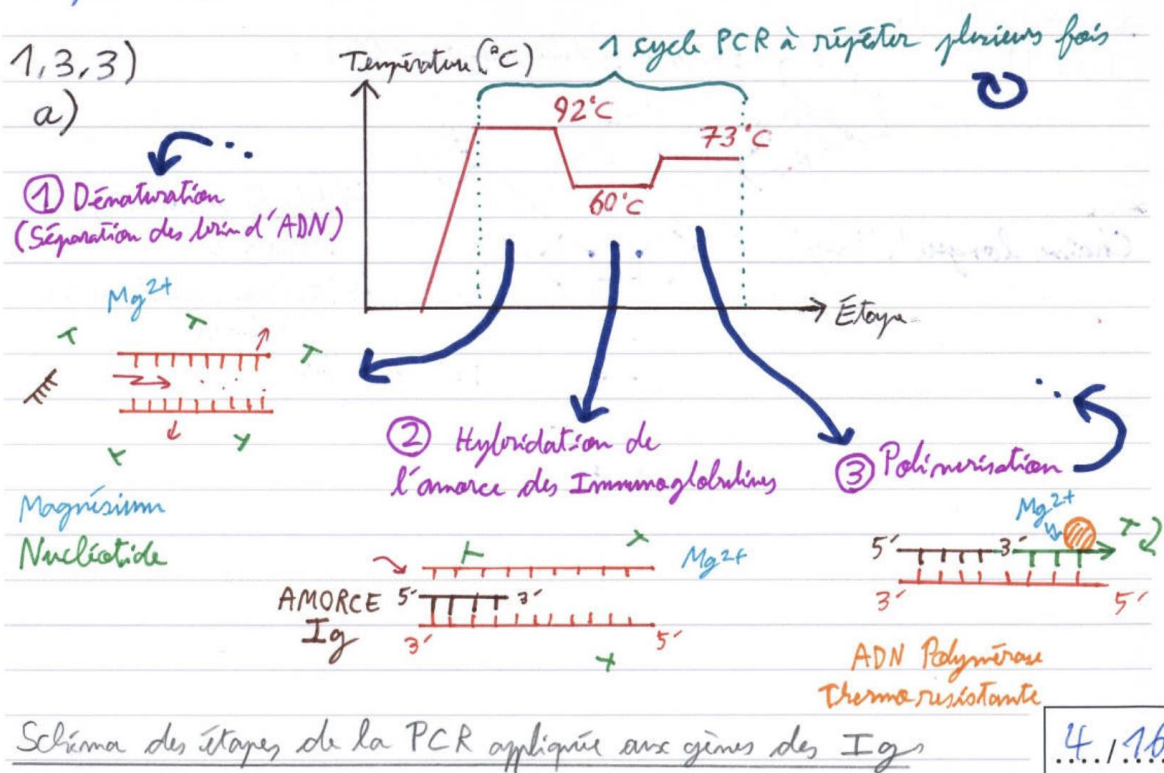 1,3,3)
a)
Température (°C)
1 cycle PCR à répéter plusieurs fois
92°C
73°C
60°C
Étape
① Dénaturation
(Séparation des brin d'ADN)
Mg²⁺
Magnésium
Nucléotide
② Hybridation de
l'amorce des Immunoglobulines
③ Polimerisation
AMORCE
Ig
5' 3'
3' 5'
Mg²⁺
Mg²⁺
5' 3'
3' 5'
ADN Polymérase
Thermoresistante
Schéma des étapes de la PCR appliquée aux gènes des Igs
4./16